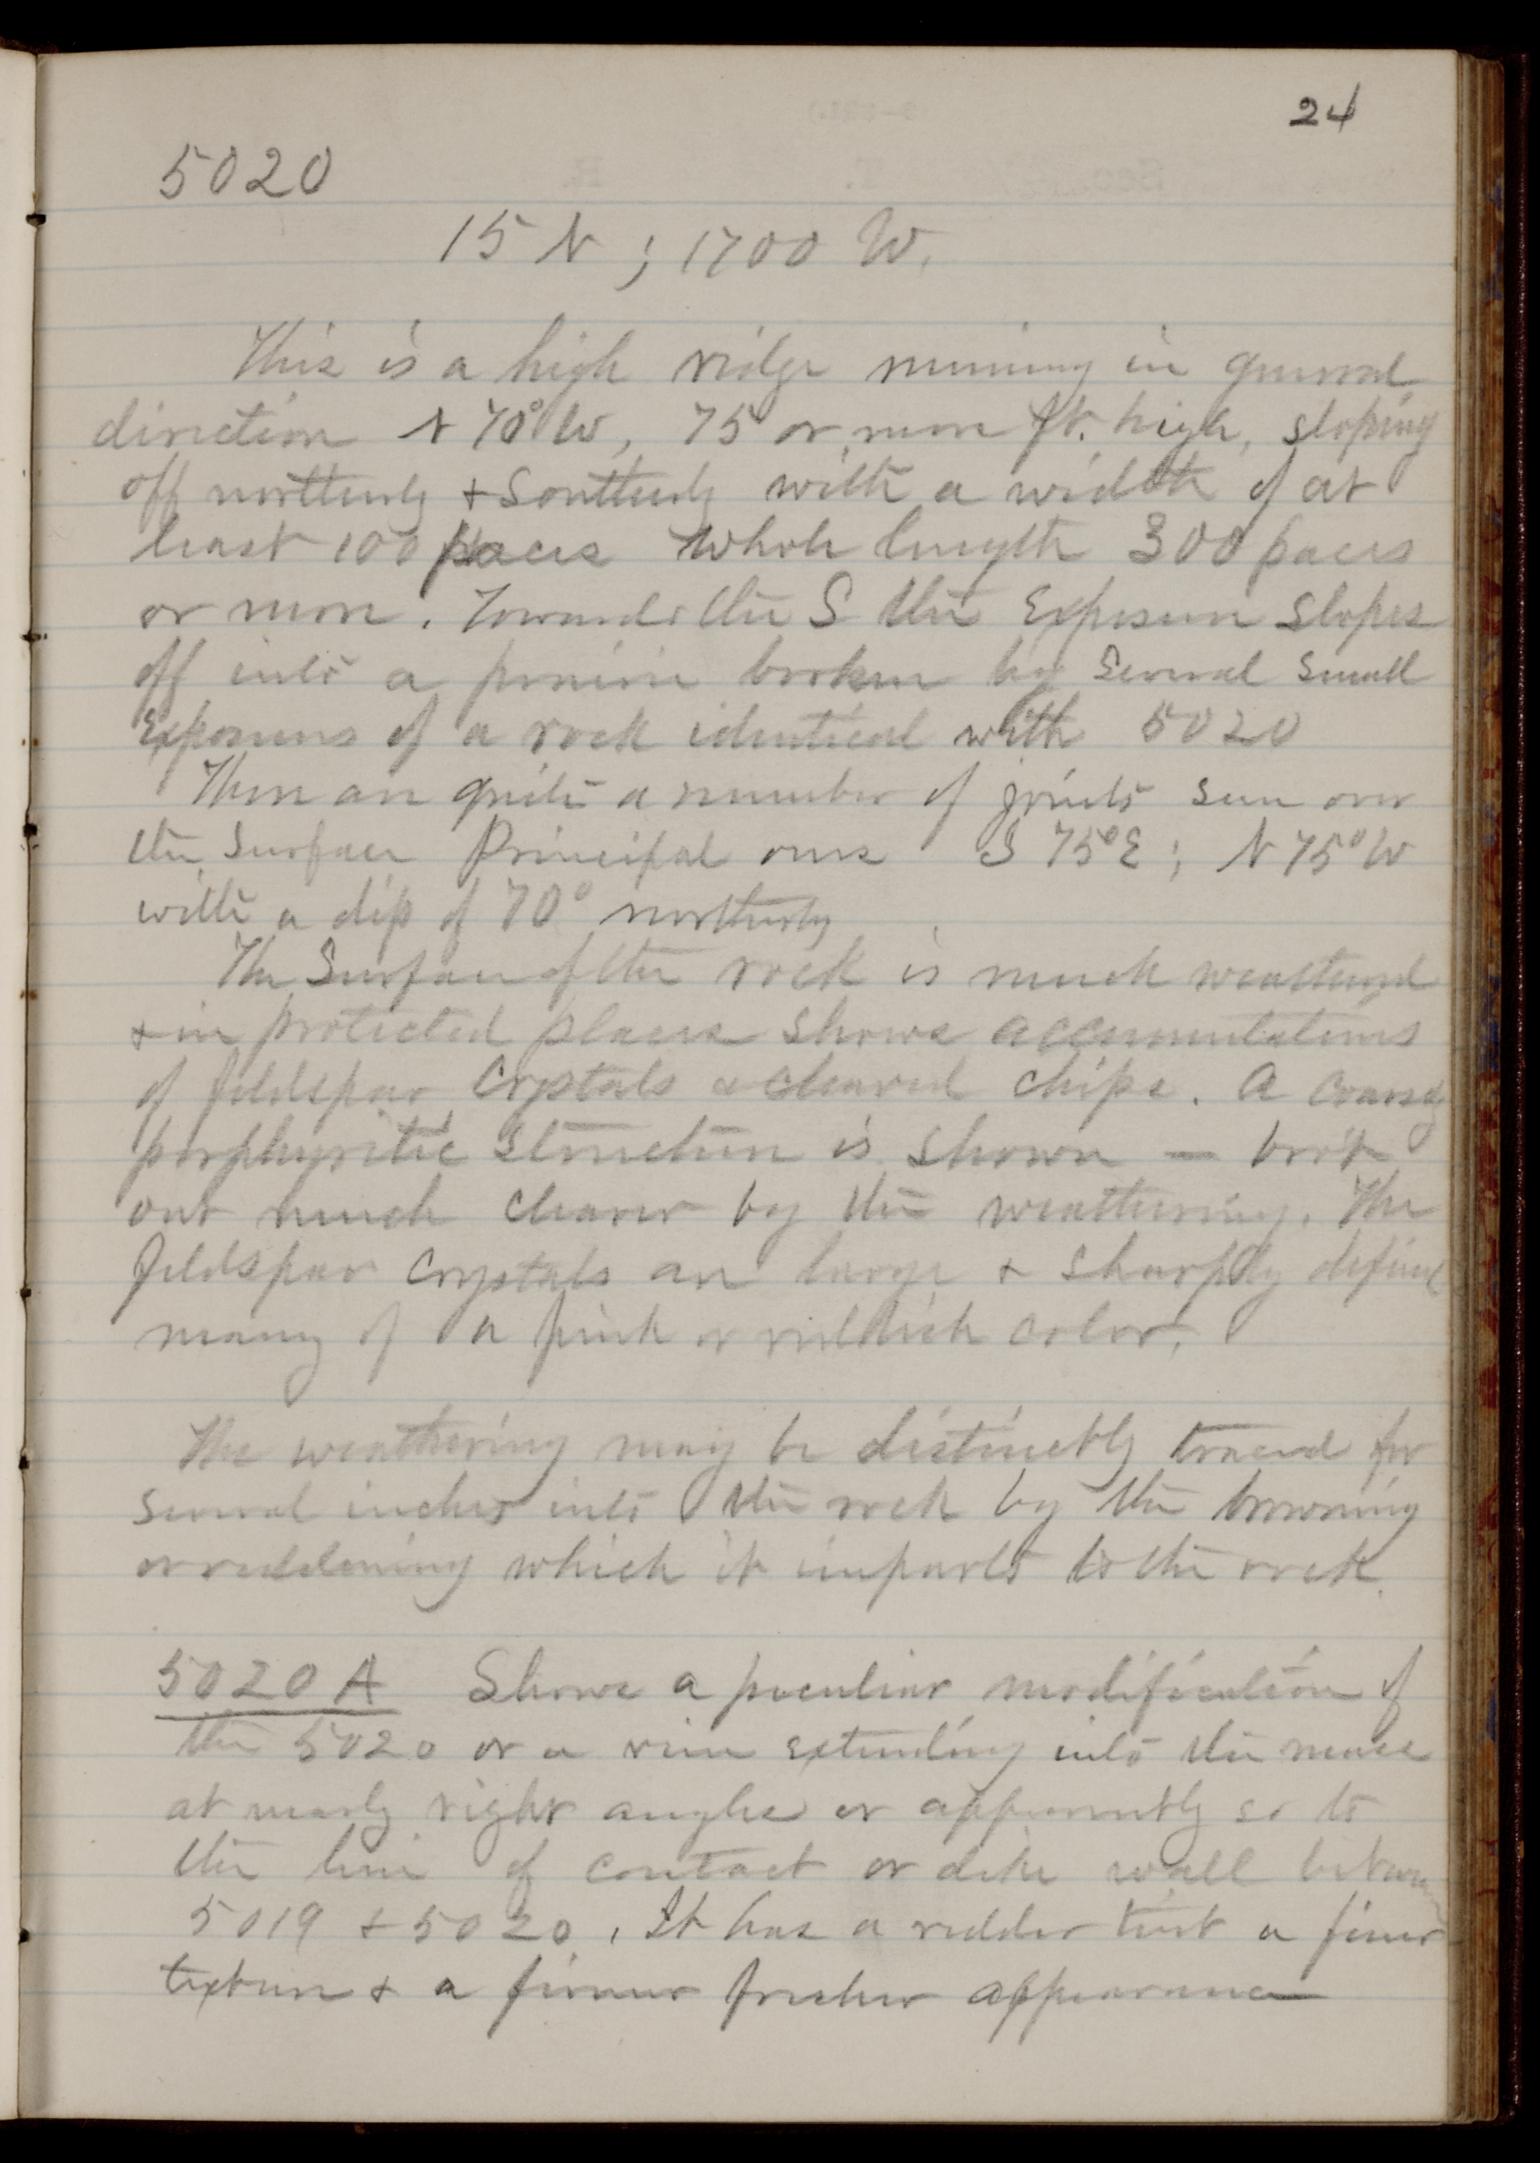 24
5020
15 N ; 1700 W.
This is a high ridge running in general
direction N 70° W, 75 or more ft. high, sloping
off northerly & Southerly with a width of at
least 100 paces Whole length 300 paces
or more. Towards the S the Exposure Slopes
off into a prairie broken by Several Small
Exposures of a rock identical with 5020
There are quite a number of joints seen over
the Surface Principal ones S 75° E ; N 75° W
with a dip of 70° northerly
The Surface of the rock is much weathered
& in protected places Shows accumulations
of feldspar Crystals & cleaved chips. A coarsely
porphyritic Structure is shown — bro't
out much clearer by the weathering. The
feldspar crystals are large & sharply defined
many of a pink or reddish color.
The weathering may be distinctly traced for
Several inches into the rock by the browning
or reddening which it imparts to the rock.
5020 A Shows a peculiar modification of
the 5020 or a vein extending into the mass
at nearly right angles or apparently so to
the line of contact or dike wall between
5019 & 5020. It has a redder tint a finer
texture & a firmer fresher appearance